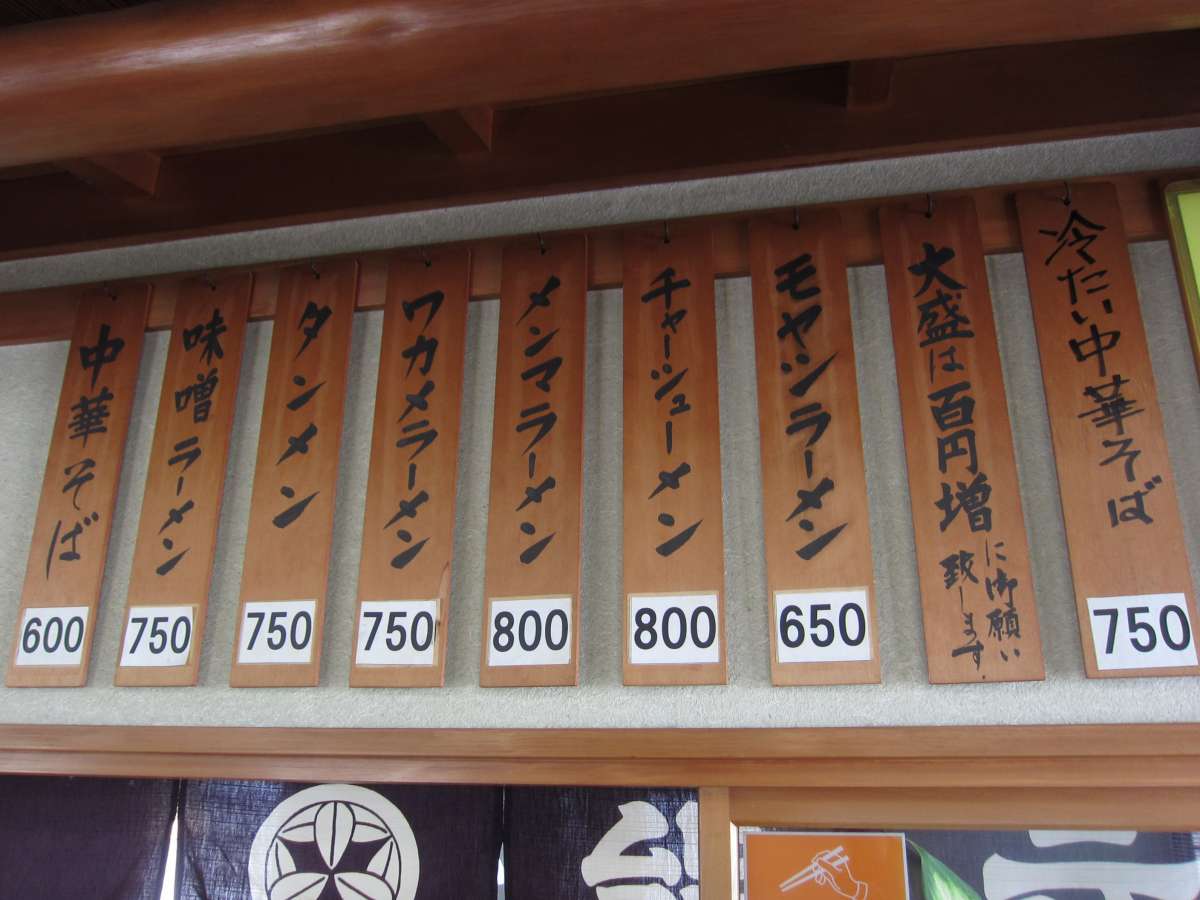 冷たい中華そば
750
大盛は百円増
に御願い
致します
モヤシラーメン
650
チャーシューメン
800
メンマラーメン
800
ワカメラーメン
750
タンメン
750
味噌ラーメン
750
中華そば
600